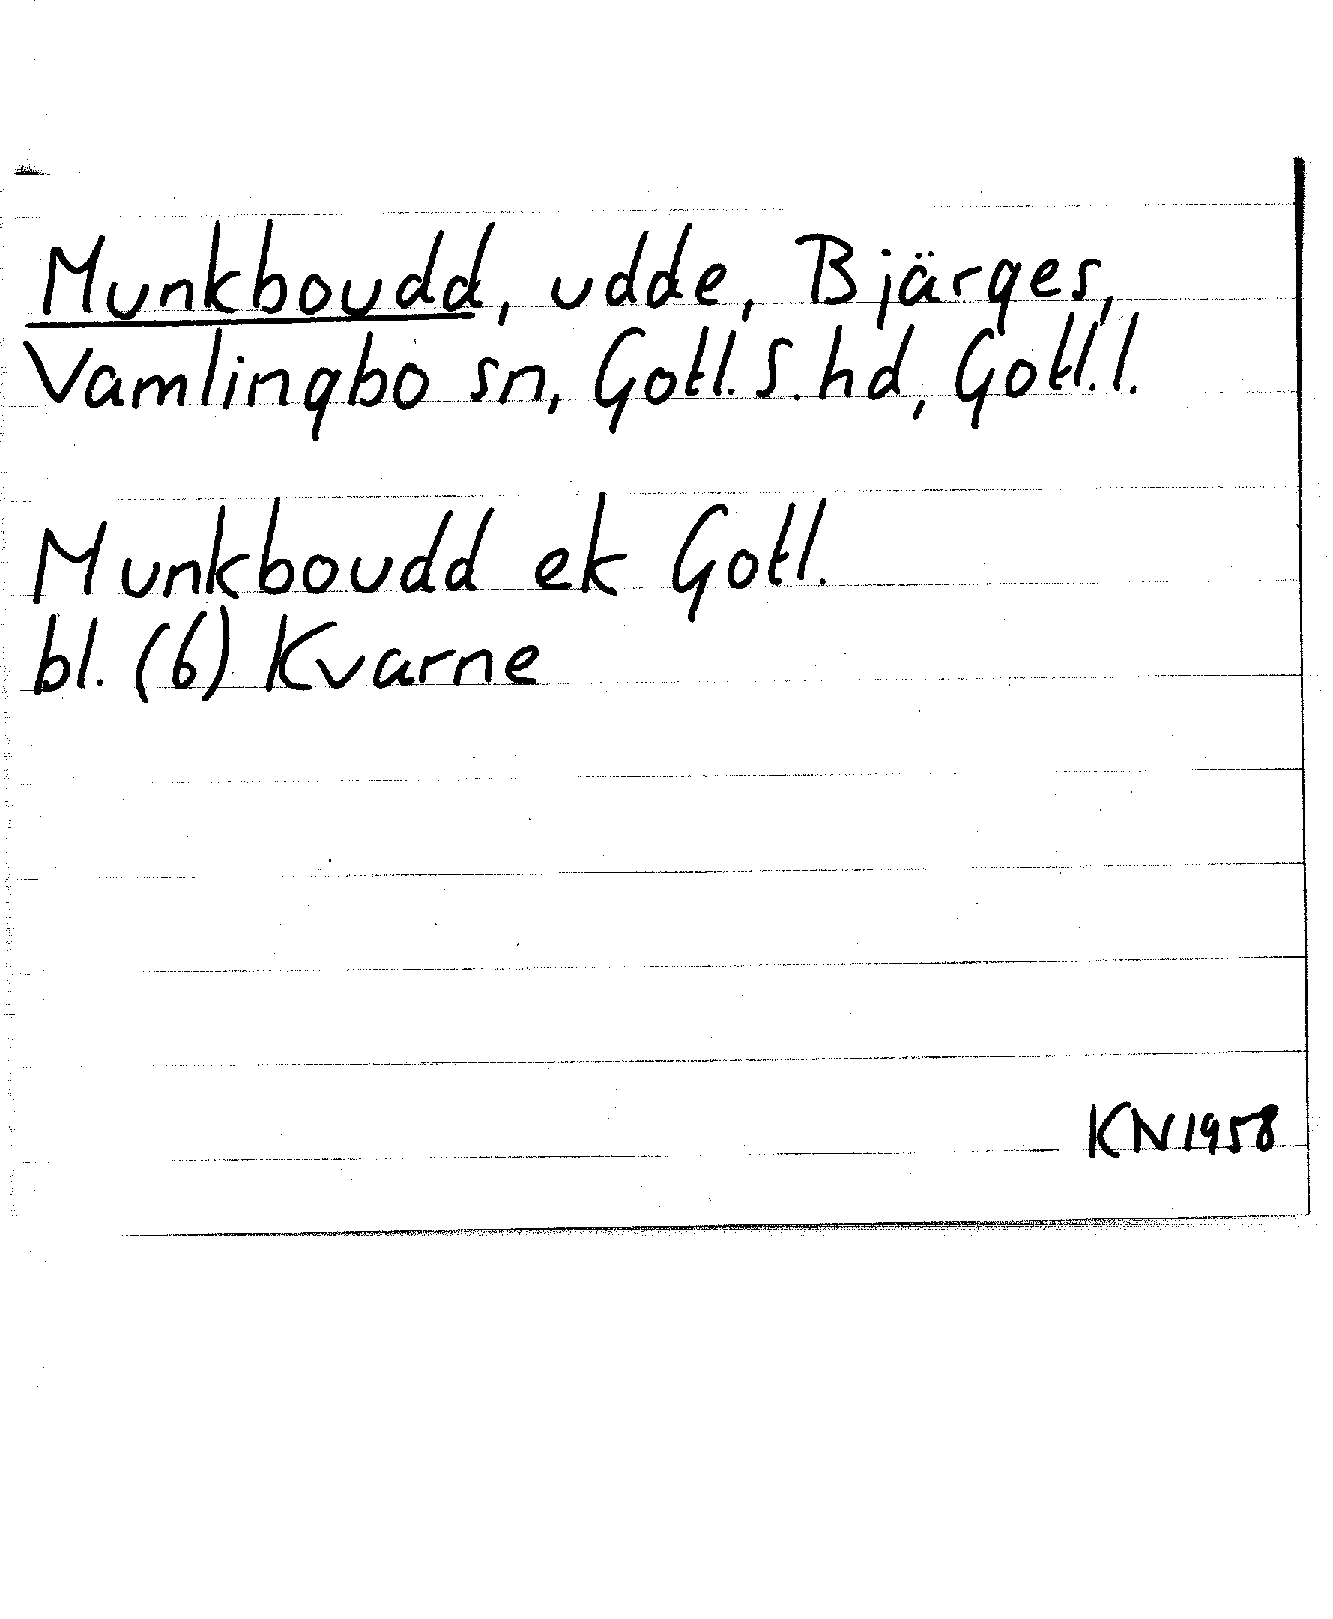 Munkboudd, udde, Bjärges,
Vamlingbo sn, Gotl. S. hd, Gotl. l.
Munkboudd ek Gotl.
bl. (6) Kvarne
KN 1958